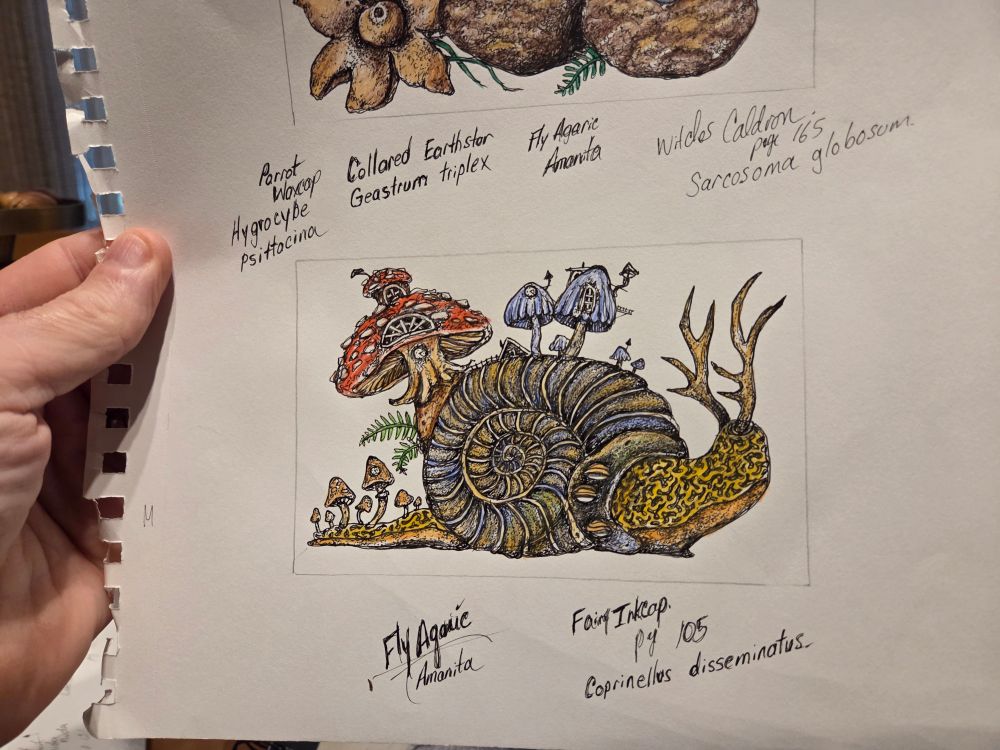 Parrot
Waxcap
Hygrocybe
psittacina
Collared Earthstar
Geastrum triplex
Fly Agaric
Amanita
Witches Caldron.
page 165
Sarcosoma globosum.
M
Fly Agaric
Amanita
Fairy Inkcap.
pg 105
Coprinellus disseminatus.